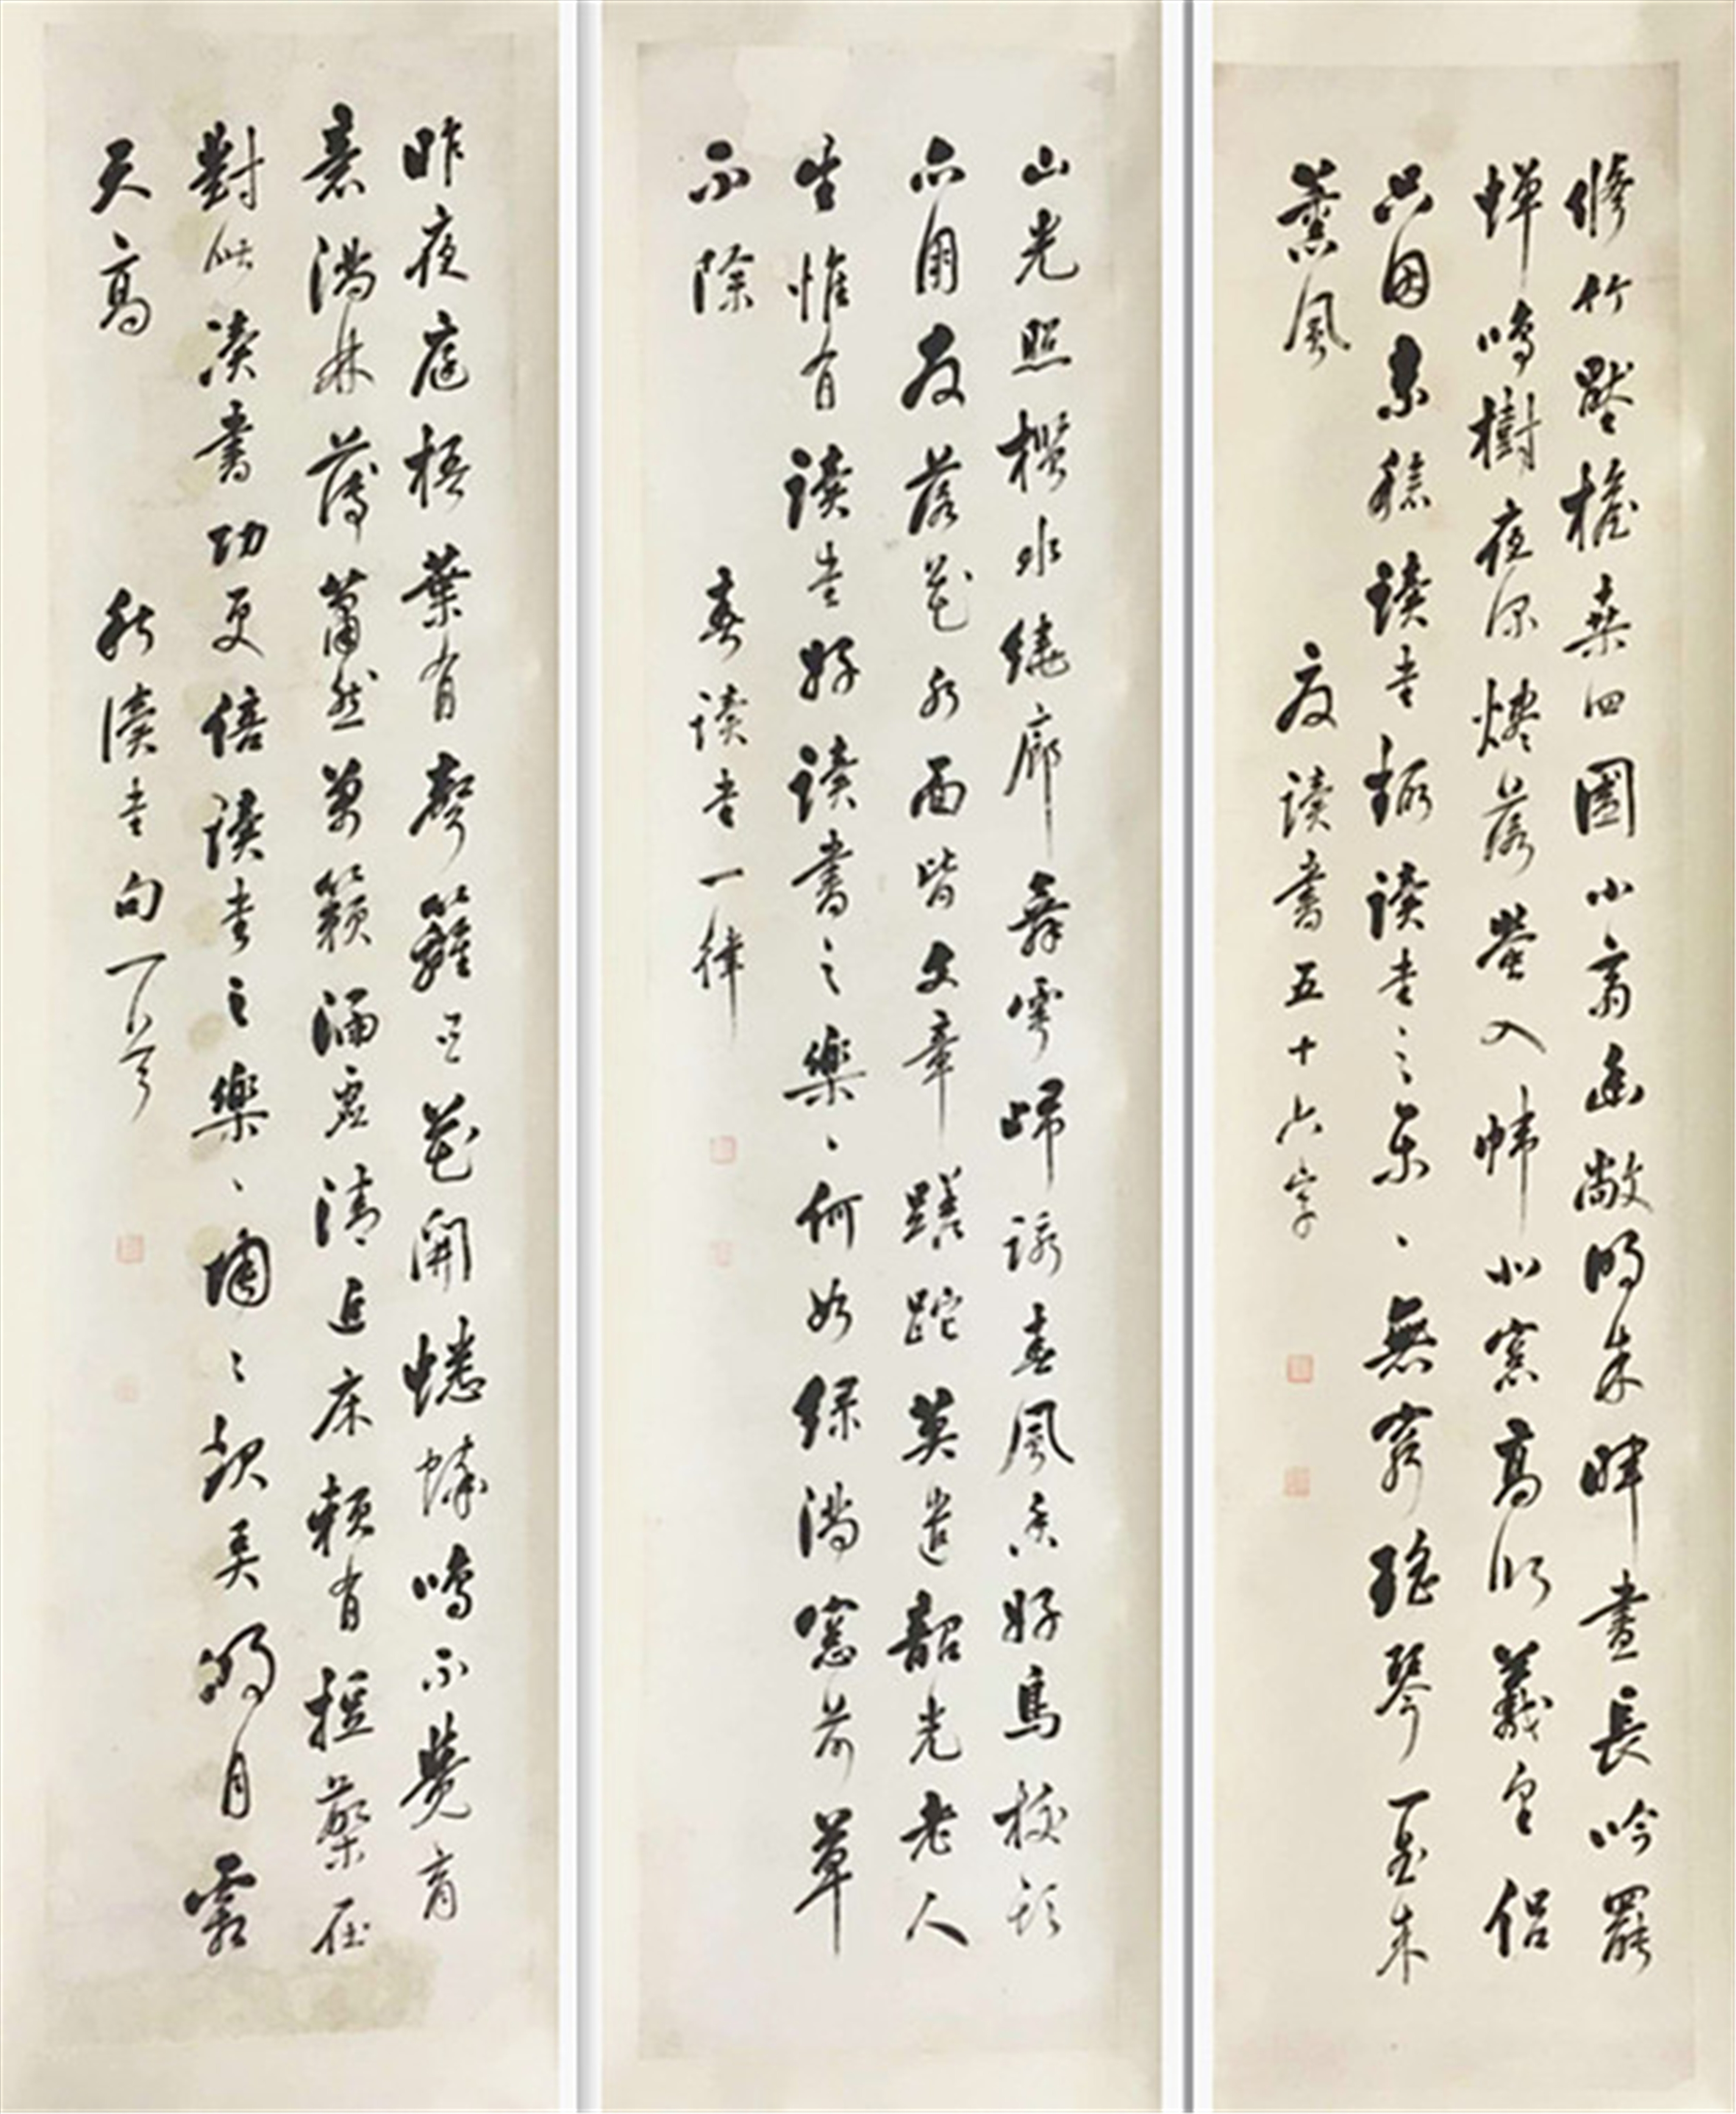 修竹壓檐桑四圍小齋幽敞明朱暉晝長吟罷
蟬鳴樹夜深燼落螢入幃北窗高臥羲皇侶
只因素稔讀書趣讀書之樂、無窮瑤琴一曲來
薰風
夏讀書五十六字
山光照檻水繞廊舞雩歸詠春風香好鳥枝頭
亦朋友落花水面皆文章蹉跎莫遣韶光老人
生惟有讀書好讀書之樂、何如綠滿窗前草
不除
春讀書一律
昨夜庭梧葉有聲籬豆花開蟋蟀鳴不覺商
意滿林薄蕭然萬籟涵虛清近床賴有短檠在
對此讀書功更倍讀書之樂、陶々起弄明月霜
天高
秋讀書句一首